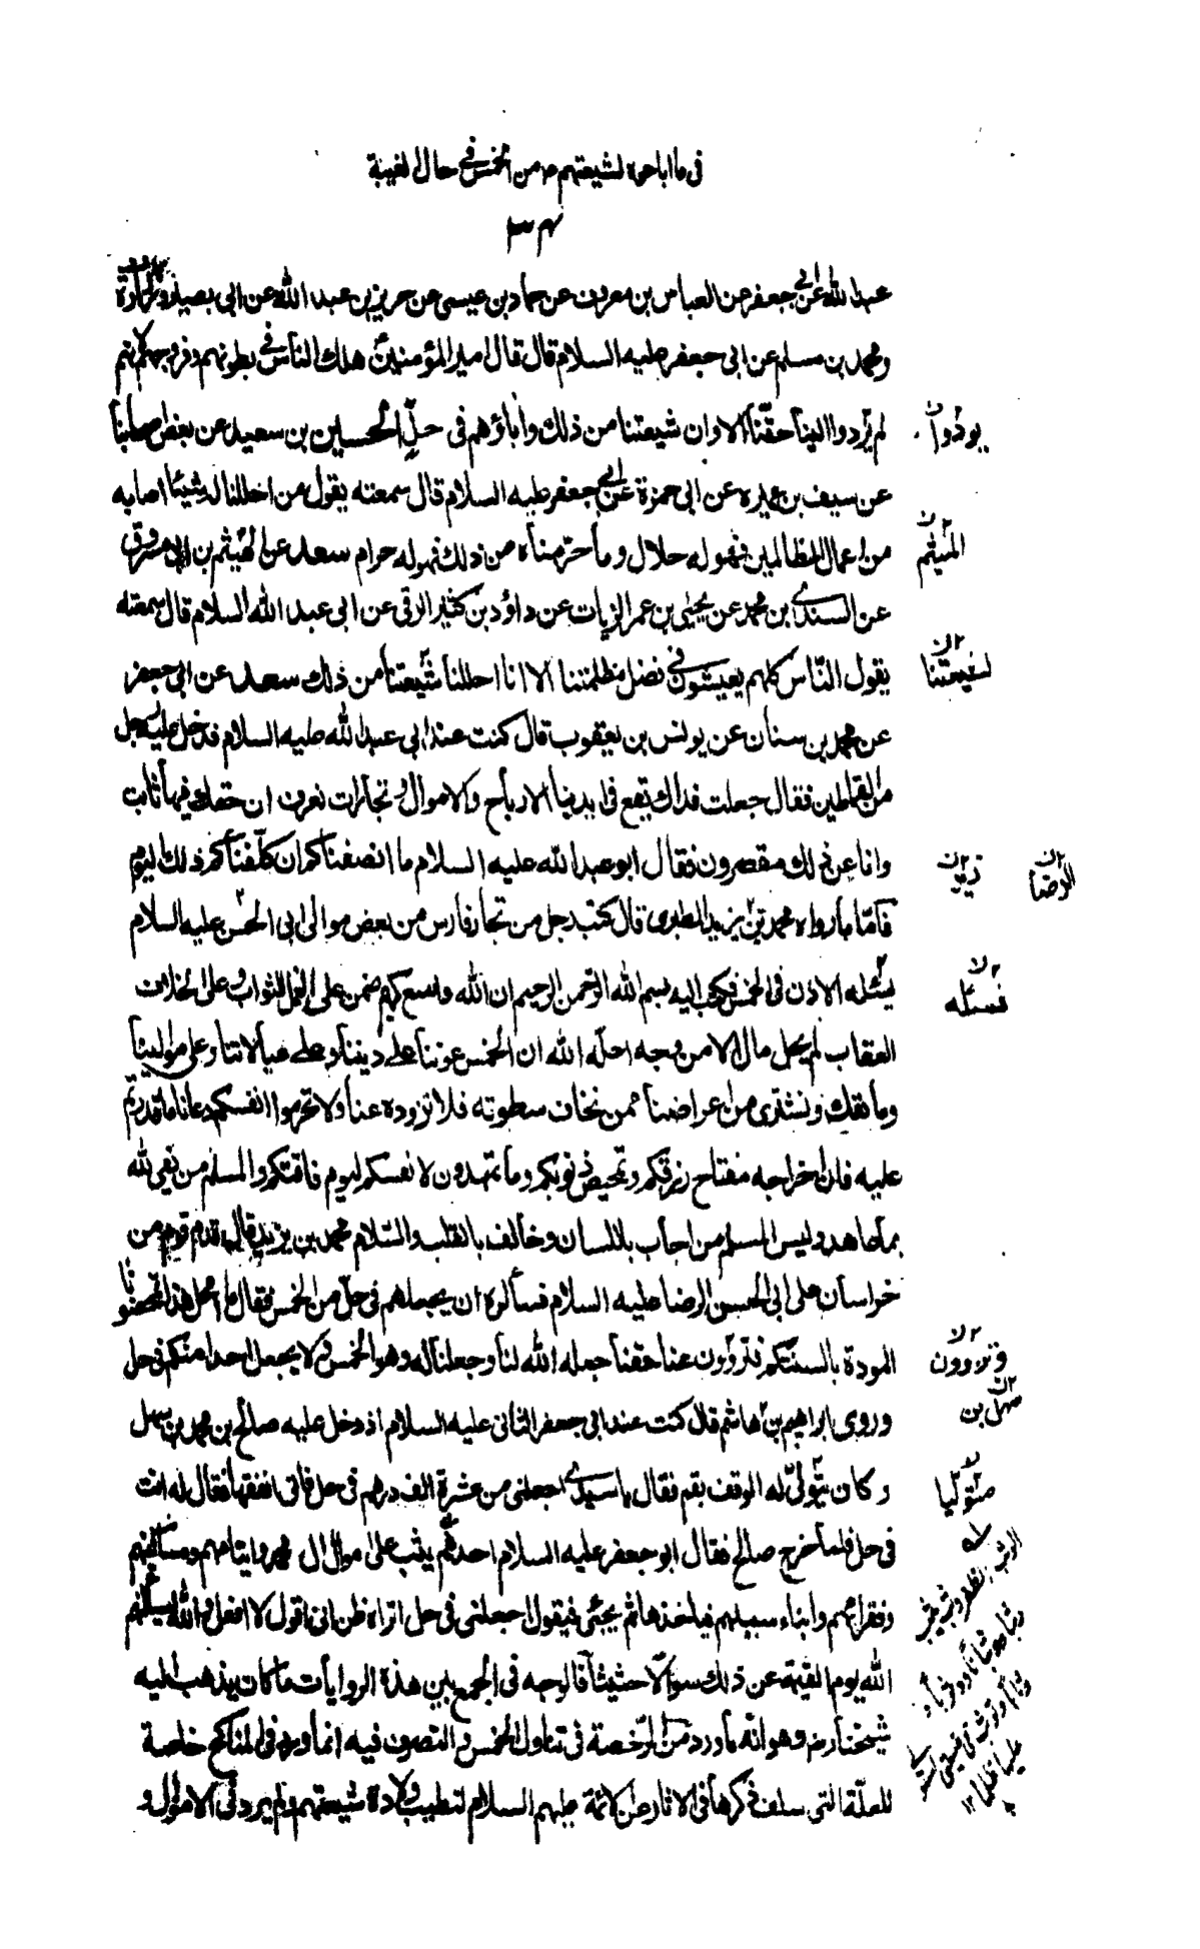 في ما اباحوه لشيعتهم ع من الخمس في حال الغيبة
٣٤
عبد الله عن ابي جعفر عن العباس بن معروف عن حماد بن عيسى عن حريز بن عبد الله عن ابي بصير وزرارة
ومحمد بن مسلم عن ابي جعفر عليه السلام قال قال امير المؤمنين هلك الناس في بطونهم وفروجهم لانهم
لم يردوا الينا حقنا الا وان شيعتنا من ذلك واباؤهم في حل الحسين بن سعيد عن بعض اصحابنا
يودوا ن
عن سيف بن عميره عن ابي حمزة عن ابي جعفر عليه السلام قال سمعته يقول من احللنا له شيئا اصابه
من اعمال الظالمين فهو له حلال وما حرمناه من ذلك فهو له حرام سعد عن الهيثم بن ابي مسروق
الميثم
عن السندي بن محمد عن يحيى بن عمر الزيات عن داؤد بن كثير الرقي عن ابي عبد الله السلام قال سمعته
يقول الناس كلهم يعيشون في فضل مظلمتنا الا انا احللنا شيعتنا من ذلك سعد عن ابي جعفر
لشيعتنا
عن محمد بن سنان عن يونس بن يعقوب قال كنت عند ابي عبد الله عليه السلام فدخل عليه رجل
من القماطين فقال جعلت فداك يقع في ايدينا الارباح والاموال وتجارات نعرف ان حقك فيها ثابت
وانا عن ذلك مقصرون فقال ابو عبد الله عليه السلام ما انصفناكم ان كلفناكم ذلك اليوم
زيد
الرضا
فاما ما رواه محمد بن يزيد الطبرى قال كتب رجل من تجار فارس من بعض موالي ابي الحسن عليه السلام
يسئله الاذن في الخمس فكتب اليه بسم الله الرحمن الرحيم ان الله واسع كريم ضمن على العمل الثواب وعلى الخلاف
فسئله
العقاب لم يحل مال الا من وجه احله الله ان الخمس عوننا على ديننا وعلى عيالاتنا وعلى موالينا
وما نفك ونشترى من اعراضنا ممن نخاف سطوته فلا تزووه عنا ولا تحرموا انفسكم دعانا ما قدرتم
عليه فان اخراجه مفتاح رزقكم وتمحيص ذنوبكم وما تمهدون لانفسكم ليوم فاقتكم والمسلم من يفي لله
بما عاهد وليس المسلم من اجاب باللسان وخالف بالقلب والسلام محمد بن يزيد قال قدم قوم من
خراسان على ابي الحسن الرضا عليه السلام فسألوه ان يجعلهم في حل من الخمس فقال ما امحل هذا تمحضونا
المودة بالسنتكم فتزوون عنا حقنا جعله الله لنا وجعلنا له وهو الخمس لا يجعل احدا منكم في حل
وتزوون
وروى ابراهيم بن هاشم قال كنت عند ابي جعفر الثاني عليه السلام اذ دخل عليه صالح بن محمد بن سهل
سهل بن
وكان يتولى له الوقف بقم فقال يا سيدي اجعلني من عشرة الف درهم في حل فاني انفقتها فقال له انت
متوليا
في حل فلما خرج صالح فقال ابو جعفر عليه السلام احدهم يثب على اموال ال محمد وايتامهم ومساكينهم
وفقرائهم وابناء سبيلهم فياخذها ثم يجئ فيقول اجعلني في حل اتراه ظن اني اقول لا افعل والله ليسئلنهم
الله يوم القيمة عن ذلك سؤالا حثيثا فالوجه في الجمع بين هذه الروايات ما كان يذهب اليه
شيخنا ره وهو انه ما ورد من الرخصة في تناول الخمس والتصرف فيه انما ورد في المناكح خاصة
للعلة التي سلف ذكرها في الاثار عن الائمة عليهم السلام لتطيب ولادة شيعتهم ولم يرد في الاموال و